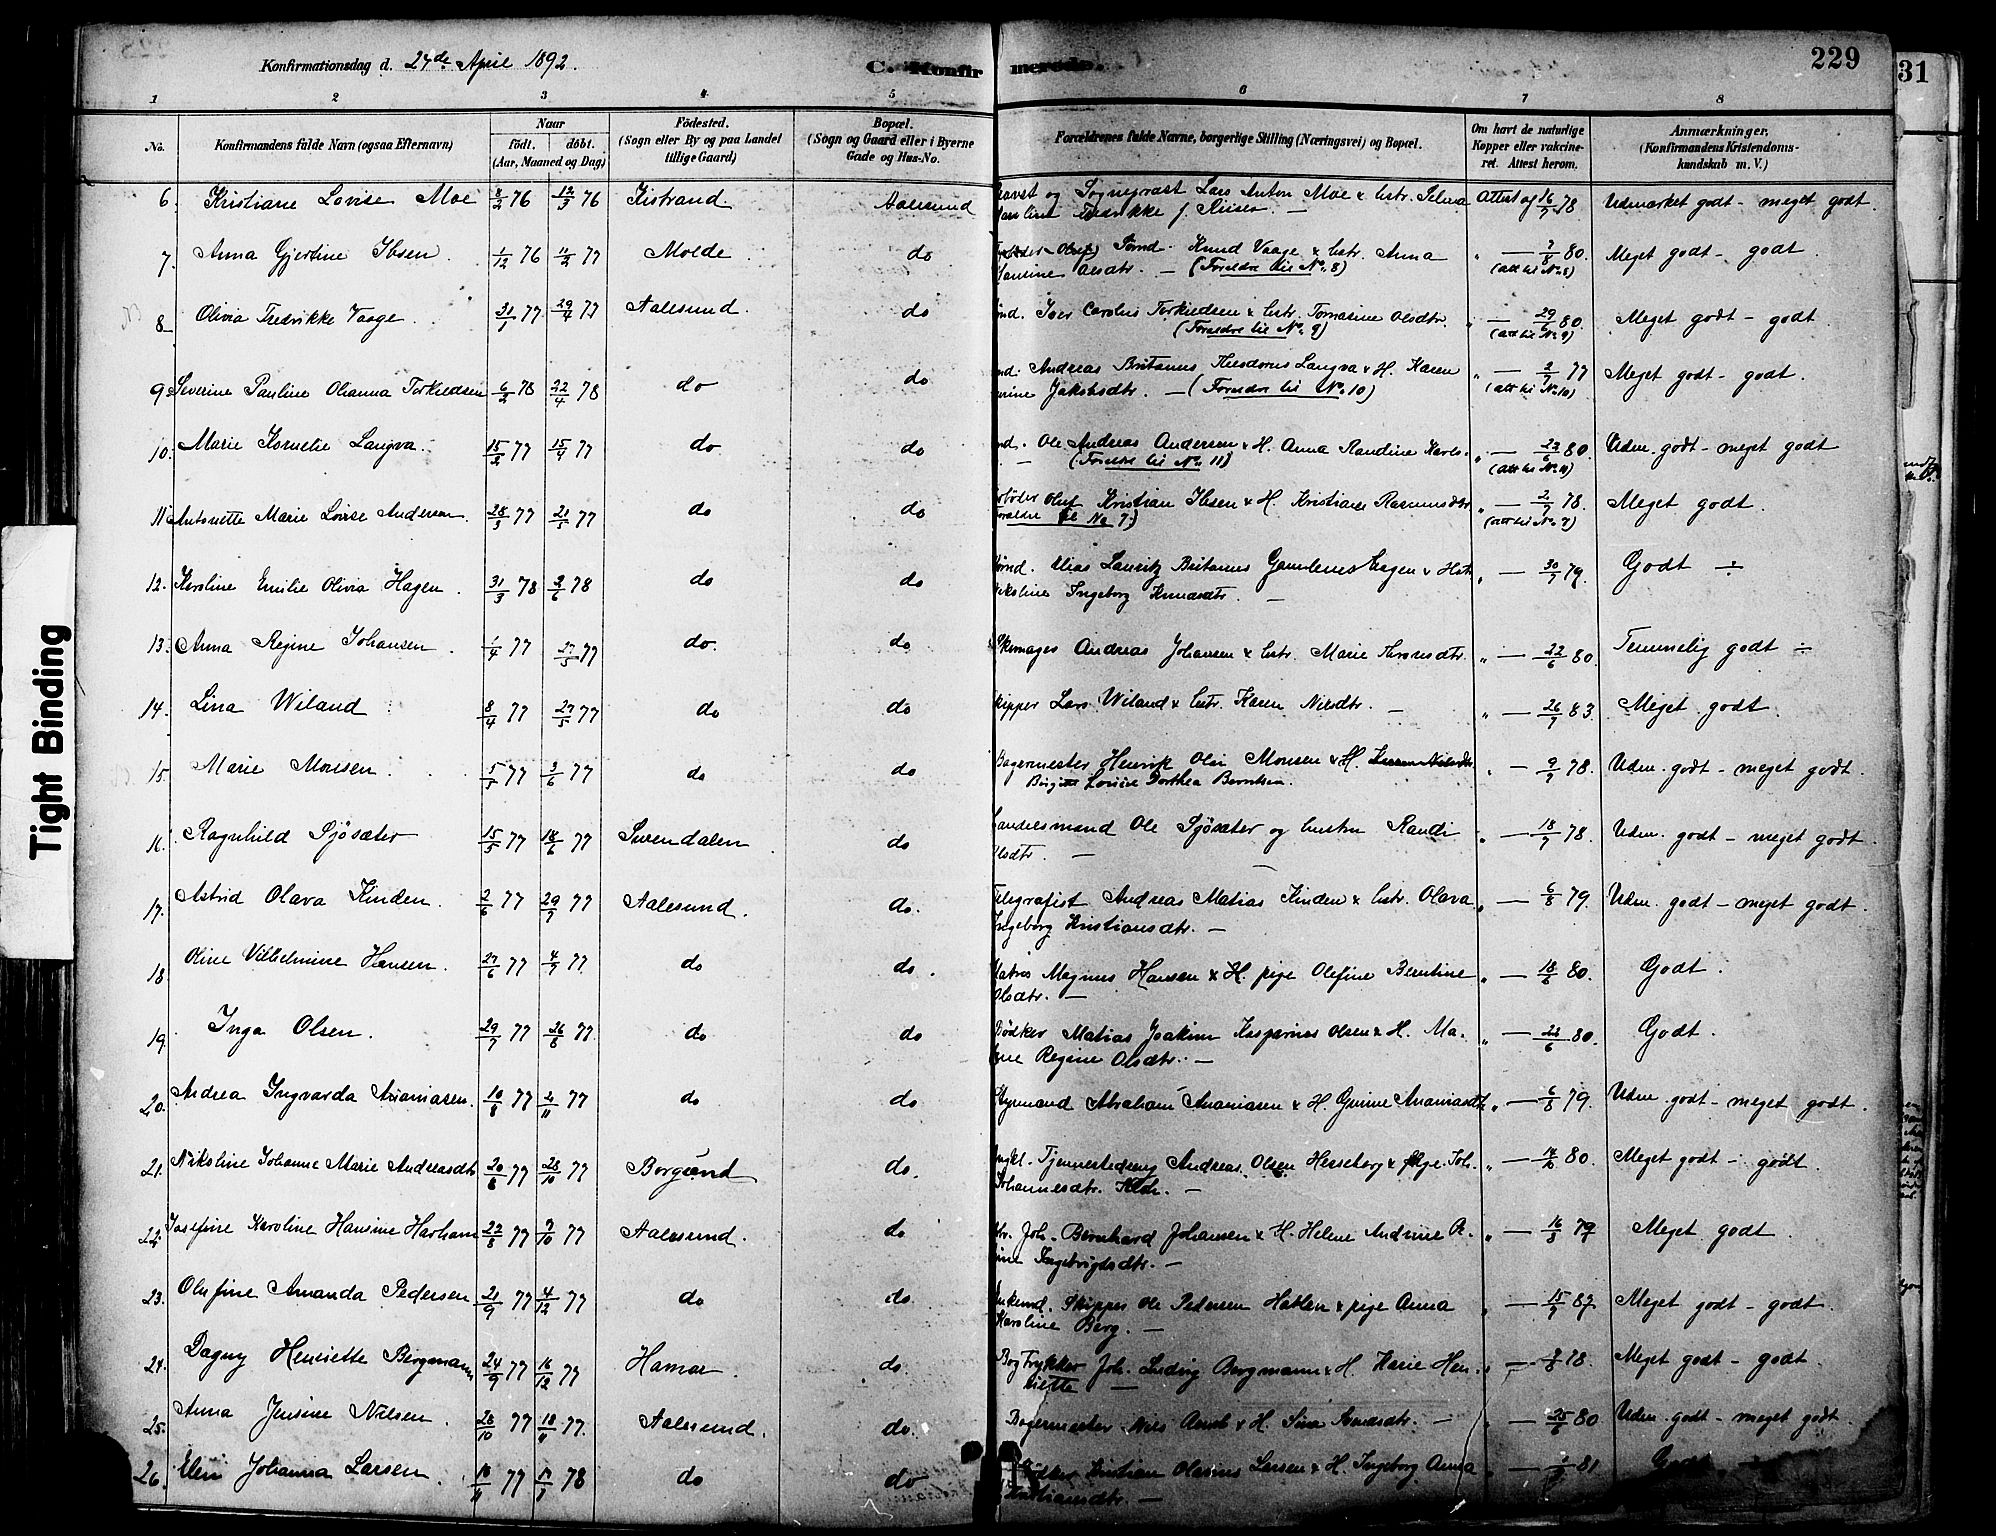 Konfirmationsdag d. 24de April 1892.
C. Konfirmerede.
229
31
1 2 3 4 5 6 7 8
No.
Konfirmandens fulde Navn (ogsaa Efternavn)
Naar
födt. döbt.
(Aar, Maaned og Dag)
Födested.
(Sogn eller By og paa Landet
tillige Gaard)
Bopæl.
(Sogn og Gaard eller i Byerne
Gade og Hus-No.
Forældrenes fulde Navne, borgerlige Stilling (Næringsvei) og Bopæl.
Om havt de naturlige
Kopper eller vakcine-
ret. Attest herom.
Anmærkninger,
(Konfirmandens Kristendoms-
kundskab m. V.)
6. Kristiane Lovise Moe 8/2 76 12/3 76 Kistrand. Aalesund Provst og Sogneprest Lars Anton Moe & hstr. Selma Attest af 16/7 78 Udmærket godt - meget godt.
Fredrikke f. Riiser. —
7. Anna Gjertine Ibsen. 1/12 76 11/2 77 Molde do Knud Vaage & hstr. Anna " — 80. Meget godt - godt.
Hansine Olsdtr. — (Forældre til No. 8) (att til No. 8)
8 Olivia Fredrikke Vaage. 31/1 77 29/4 77 Aalesund. do Iver Carolus Torkildsen & hstr. Tomasine Olsdtr. " — 29/6 80. Meget godt - godt.
(Forældre til No. 9) (att til No. 9)
9. Severine Pauline Olianna Torkildsen 6/2 78 22/4 78 do do Andreas Britanus Theodorus Langva & H. Karen " — 2/7 77 Meget godt - godt.
Jakobsdtr. — (Forældre til No. 10) (att til No. 10)
10. Marie Kornelie Langva. 15/2 77 15/4 77 do do Ole Andreas Andersen & H. Anna Randine Karls- — 23/6 80. Udm. godt - meget godt
— (Forældre til No. 11) (att til No. 11)
11. Antonette Marie Lovise Andersen. 28/3 77 21/5 77 do do Oluf Kristian Ibsen & H. Kristiane Rasmusdtr " — 2/7 78. Meget godt.
Forældre til No 7.) (att til No. 7)
12. Karoline Emilie Olivia Hagen. 31/3 78 2/6 78 do do Elias Lauritz Britanus Hagen & Hstr " — 30/7 79. Godt ÷
Nikoline Ingeborg Knudsdtr. —
13. Anna Regine Johansen. 1/4 77 27/5 77 do. do Skomager Andreas Johansen & hstr. Marie " — 22/6 80. Temmelig godt ÷
14. Lina Wiland 8/4 77 27/5 77 do do Skipper Lars Wiland & hstr. Karen Nilsdtr. — " — 26/7 83. Meget godt.
15. Marie Monsen. 5/5 77 3/6 77 do do Bagermester Henrik Olai Monsen & H. " — 9/7 78. Udm. godt - meget godt.
Lovise Dorthea Berntsen.
16. Ragnhild Sjösæter 15/5 77 18/6 77 Surendalen do Handelsmand Ole Sjösæter og hustru Randi " — 18/7 78. Udm. godt - meget godt.
Olsdtr. —
17. Astrid Olava Kinden. 2/6 77 29/7 77 Aalesund. do. Telegrafist Andreas Matias Kinden & hstr. Olava " — 6/8 79. Udm. godt - meget godt.
Ingeborg Kristiansdtr. —
18 Oline Vilhelmine Hansen. 27/6 77 4/7 77 do do. Matros Magnus Hansen & H. pige Olefine Berntine " — 18/6 80. Godt.
Olsdtr. —
19. Inga Olsen. 29/7 77 26/8 77. do do Bödker Matias Joakim Kasparius Olsen & H. Ma- " — 23/6 80. Godt.
Regine Olsdtr. —
20. Andrea Ingvarda Ananiasen. 10/8 77 2/11 77 do do Styrmand Abraham Ananiasen & H. Gurine Ananiasdtr " — 6/8 79. Udm. godt - meget godt.
21. Nikoline Johanne Marie Andreasdtr 20/8 77 28/10 77 Borgund do. Andreas Olsen & pige Joh. " — 14/6 80. Meget godt - godt.
Johannesdtr. —
22. Josefine Karoline Hansine Harham 22/8 77 7/10 77 Aalesund. do Joh. Bernhard Johansen & H. Helene Andrine " — 16/8 79 Meget godt.
Ingebrigtsdtr. —
23. Olufine Amanda Pedersen 21/9 77 4/12 77 do do. Enkemd. Skipper Ole Pedersen Hatlen & pige Anna " — 15/7 87. Meget godt - godt.
Karoline Berg. —
24. Dagny Henriette Bergmann 24/9 77 16/12 77 Hamar. do. Bogtrykker Joh. Ludvig Bergmann & H. Marie Hen- " — 78. Meget godt - godt.
riette —
25. Anna Jensine Nilsen. 28/10 77 18/11 77. Aalesund. do. Bagermester Nils & H. Sina — " — 25/6 80 Udm. godt - meget godt.
26. Elen Johanna Larsen. 10/11 77 78 do do Bödker Kristian Olasius Larsen & H. Ingeborg Anna " — 81 Godt
Kristiansdtr. —
Tight Binding